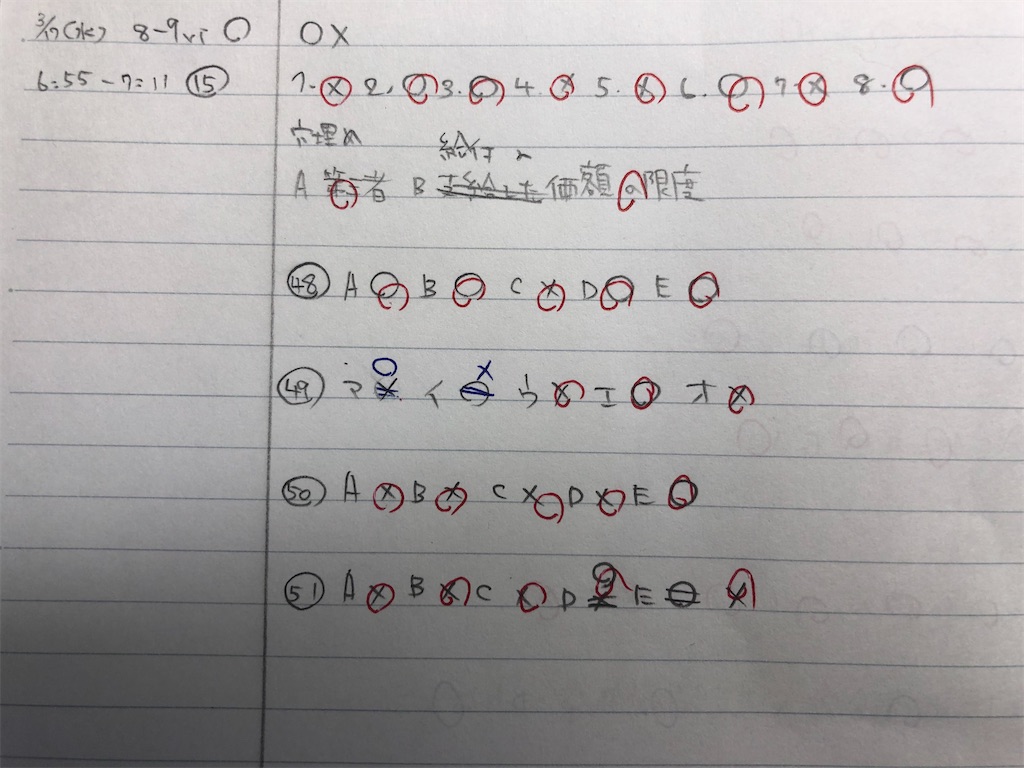 3/17(水) 8-9 ○
6:55-7:11 ⑮
○×
1.× 2.○ 3.○ 4.× 5.× 6.○ 7.× 8.○
給付
A 者 B 価額の限度
㊽ A○ B○ C× D○ E○
㊾ ア○ イ× ウ× エ○ オ×
㊿ A× B× C× D× E○
51 A× B× C× D○ E×